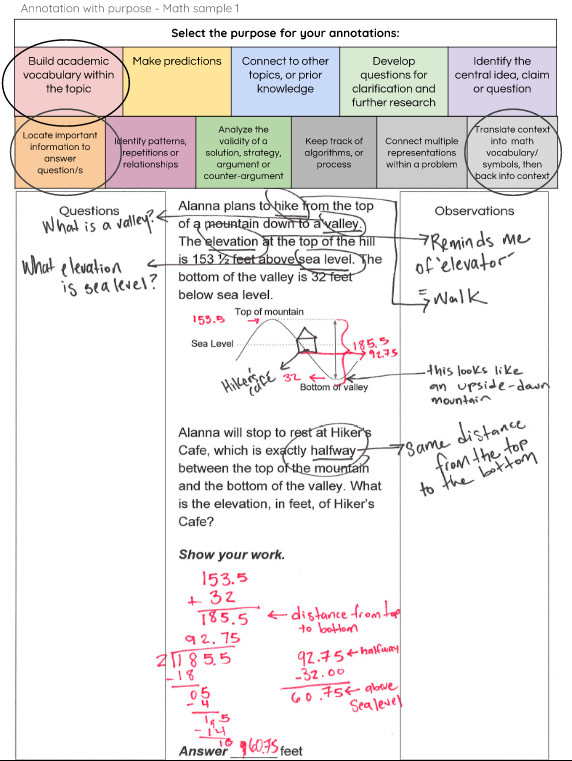 Annotation with purpose - Math sample 1
Select the purpose for your annotations:
Build academic
vocabulary within
the topic
Make predictions
Connect to other
topics, or prior
knowledge
Develop
questions for
clarification and
further research
Identify the
central idea, claim
or question
Locate important
information to
answer
question/s
Identify patterns,
repetitions or
relationships
Analyze the
validity of a
solution, strategy,
argument or
counter-argument
Keep track of
algorithms, or
process
Connect multiple
representations
within a problem
Translate context
into math
vocabulary/
symbols, then
back into context
Questions
What is a valley?
What elevation
is sea level?
Alanna plans to hike from the top
of a mountain down to a valley.
The elevation at the top of the hill
is 153 ½ feet above sea level. The
bottom of the valley is 32 feet
below sea level.
Observations
Reminds me
of "elevator"
= Walk
Top of mountain
153.5
Sea Level
185.5
92.75
Hiker's
café
32
Bottom of valley
this looks like
an upside-down
mountain
Alanna will stop to rest at Hiker's
Cafe, which is exactly halfway
between the top of the mountain
and the bottom of the valley. What
is the elevation, in feet, of Hiker's
Cafe?
Same distance
from the top
to the bottom
Show your work.
153.5
+ 32
185.5
distance from top
to bottom
92.75
2 185.5
-18
05
- 4
1.5
- 14
10
92.75 halfway
-32.00
60.75 above
Sea level
Answer 60.75 feet